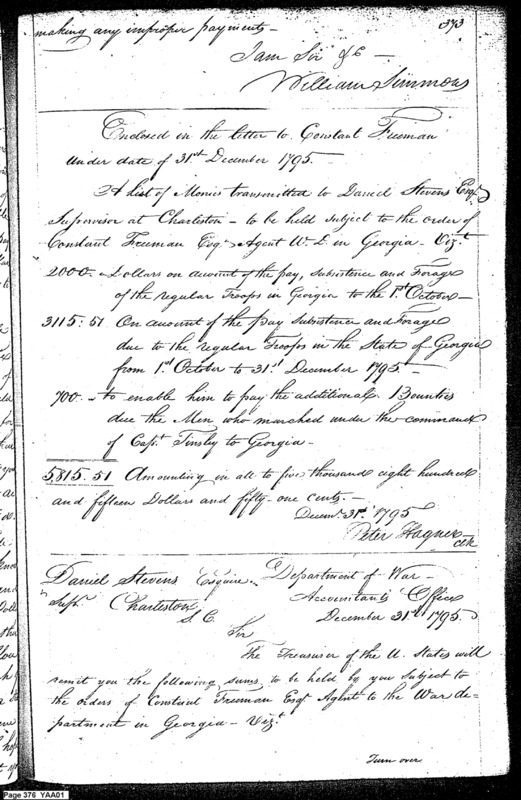 373
making any improper payments -
I am Sir &c -
William Simmons
Enclosed in the letter to Constant Freeman
under date of 31st December 1795.
A List of Monies transmitted to Daniel Stevens Esqr.
Supervisor at Charleston - to be held subject to the order of
Constant Freeman Esqr. Agent W. D. in Georgia - Vizt.
2000. - Dollars on account of the pay, subsistence and Forage
of the regular Troops in Georgia to the 1st October -
3115:51 On account of the pay subsistence and Forage
due to the regular Troops in the State of Georgia
from 1st October to 31st December 1795. -
700. - to enable him to pay the additional Bounties
due the Men who marched under the command
of Capt. Tinsley to Georgia -
5,815.51 Amounting in all to five thousand eight hundred
and fifteen Dollars and fifty-one cents. -
Decemr. 31st. 1795
Peter Hagner
clk
Daniel Stevens Esquire Department of War -
Supr. Charleston Accountants Office
S.C. December 31st 1795
Sir
The Treasurer of the U. States will
remit you the following sums, to be held by you subject to
the orders of Constant Freeman Esqr. Agent to the War de=
partment in Georgia - Vizt.
Turn over
Page 376 YAA01